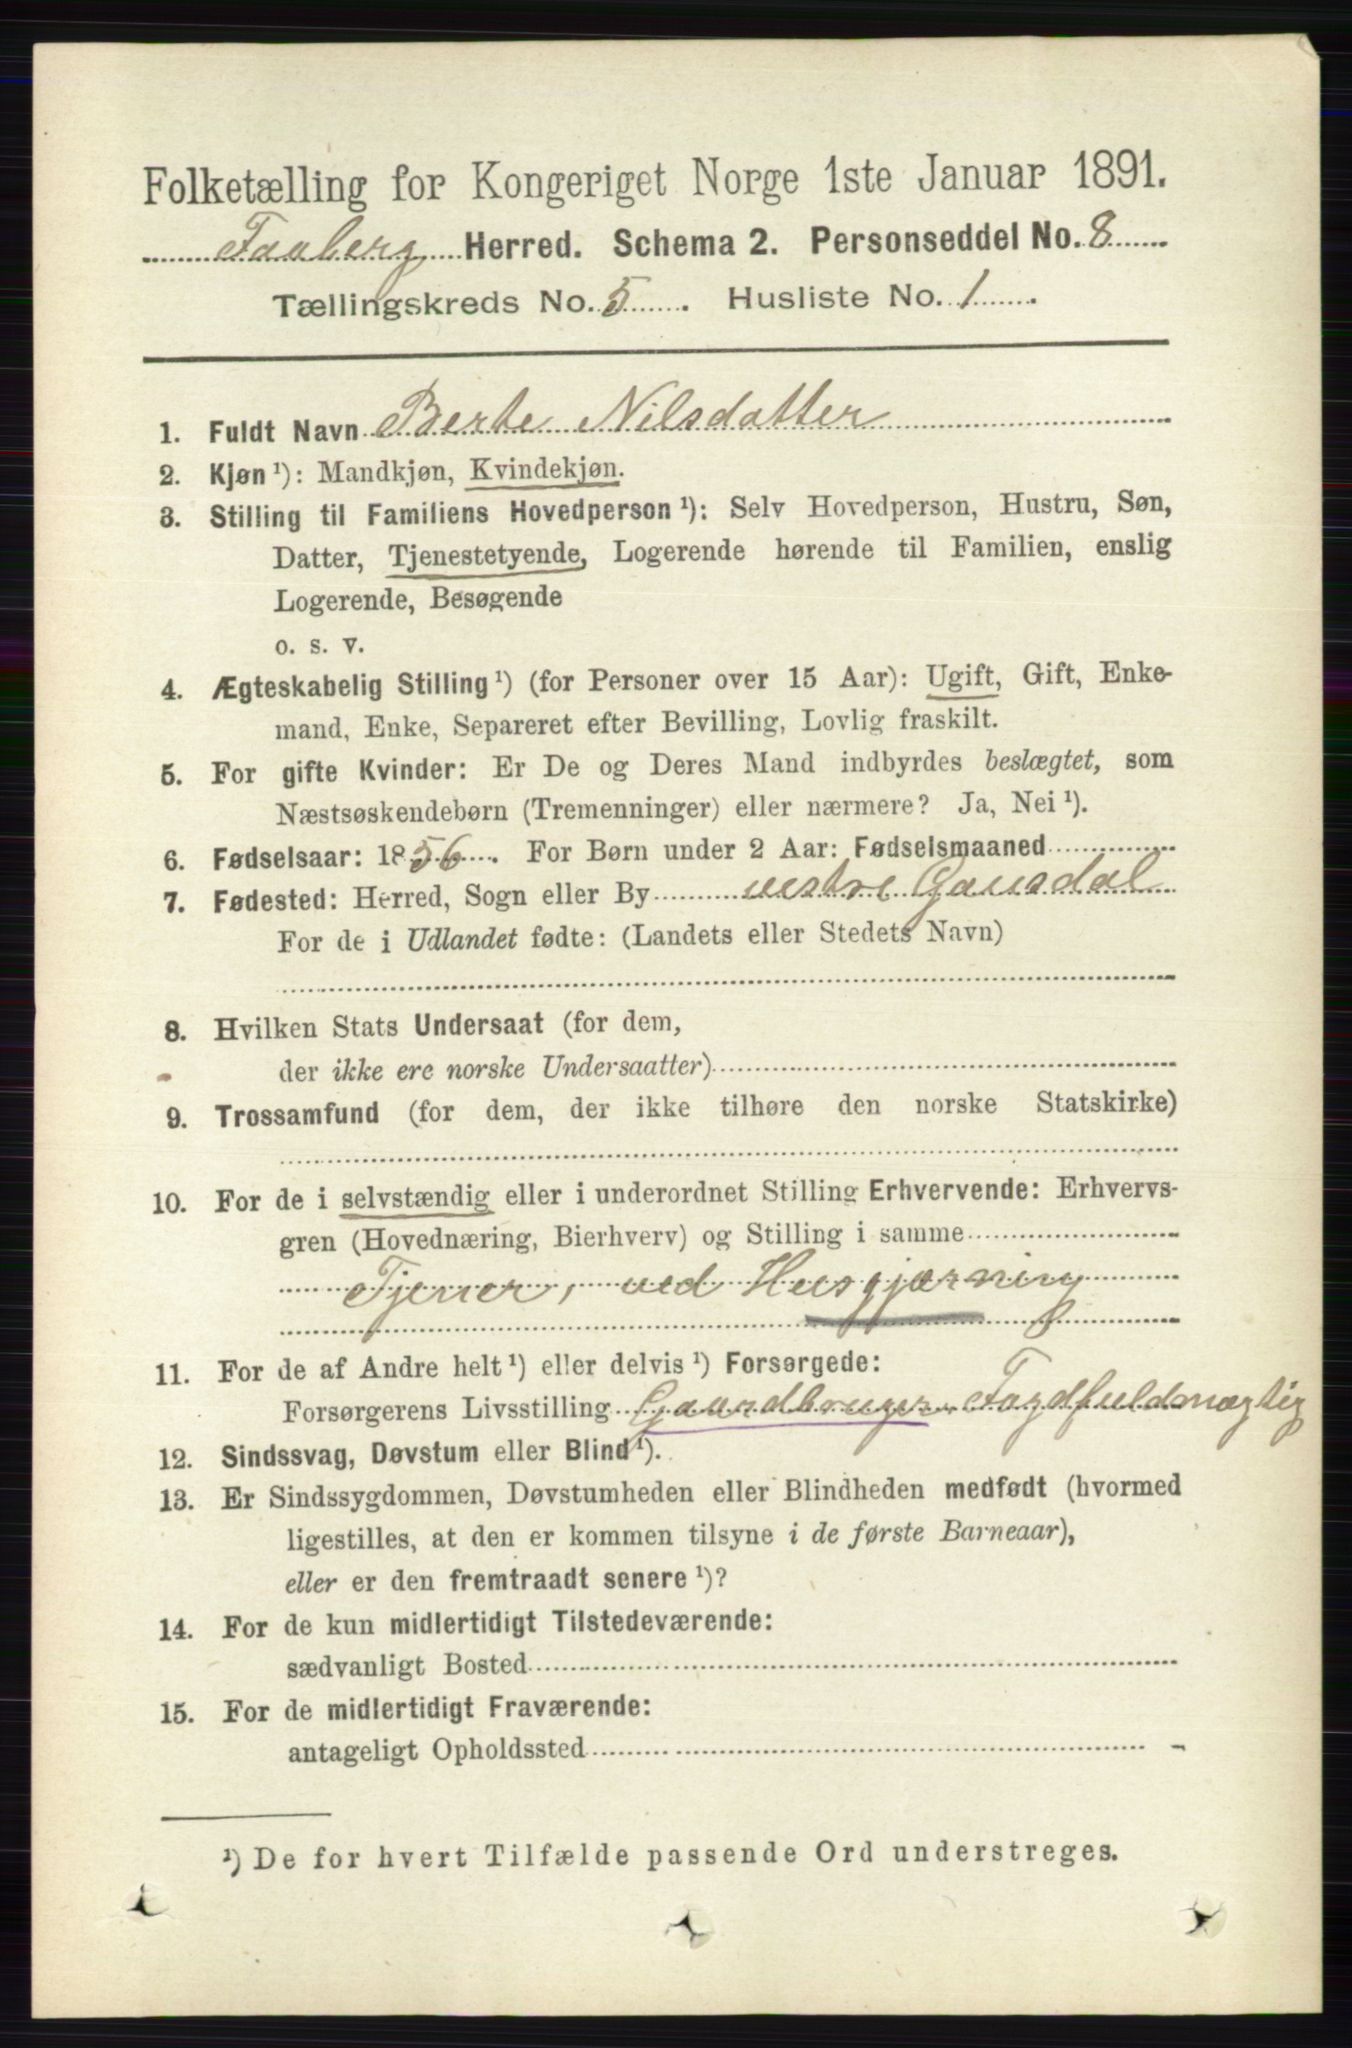 Folketælling for Kongeriget Norge 1ste Januar 1891.
Faaberg Herred. Schema 2. Personseddel No. 8
Tællingskreds No. 5. Husliste No. 1.
1. Fuldt Navn Berte Nilsdatter
2. Kjøn ¹): Mandkjøn, Kvindekjøn.
3. Stilling til Familiens Hovedperson ¹): Selv Hovedperson, Hustru, Søn,
Datter, Tjenestetyende, Logerende hørende til Familien, enslig
Logerende, Besøgende
o. s. v.
4. Ægteskabelig Stilling ¹) (for Personer over 15 Aar): Ugift, Gift, Enke-
mand, Enke, Separeret efter Bevilling, Lovlig fraskilt.
5. For gifte Kvinder: Er De og Deres Mand indbyrdes beslægtet, som
Næstsøskendebørn (Tremenninger) eller nærmere? Ja, Nei ¹).
6. Fødselsaar: 1856. For Børn under 2 Aar: Fødselsmaaned
7. Fødested: Herred, Sogn eller By vestre Gausdal
For de i Udlandet fødte: (Landets eller Stedets Navn)
8. Hvilken Stats Undersaat (for dem,
der ikke ere norske Undersaatter)
9. Trossamfund (for dem, der ikke tilhøre den norske Statskirke)
10. For de i selvstændig eller i underordnet Stilling Erhvervende: Erhvervs-
gren (Hovednæring, Bierhverv) og Stilling i samme
Tjener, ved Husgjærning
11. For de af Andre helt ¹) eller delvis ¹) Forsørgede:
Forsørgerens Livsstilling Gaardbruger, Fogdfuldmægtig
12. Sindssvag, Døvstum eller Blind ¹).
13. Er Sindssygdommen, Døvstumheden eller Blindheden medfødt (hvormed
ligestilles, at den er kommen tilsyne i de første Barneaar),
eller er den fremtraadt senere ¹)?
14. For de kun midlertidigt Tilstedeværende:
sædvanligt Bosted
15. For de midlertidigt Fraværende:
antageligt Opholdssted
¹) De for hvert Tilfælde passende Ord understreges.